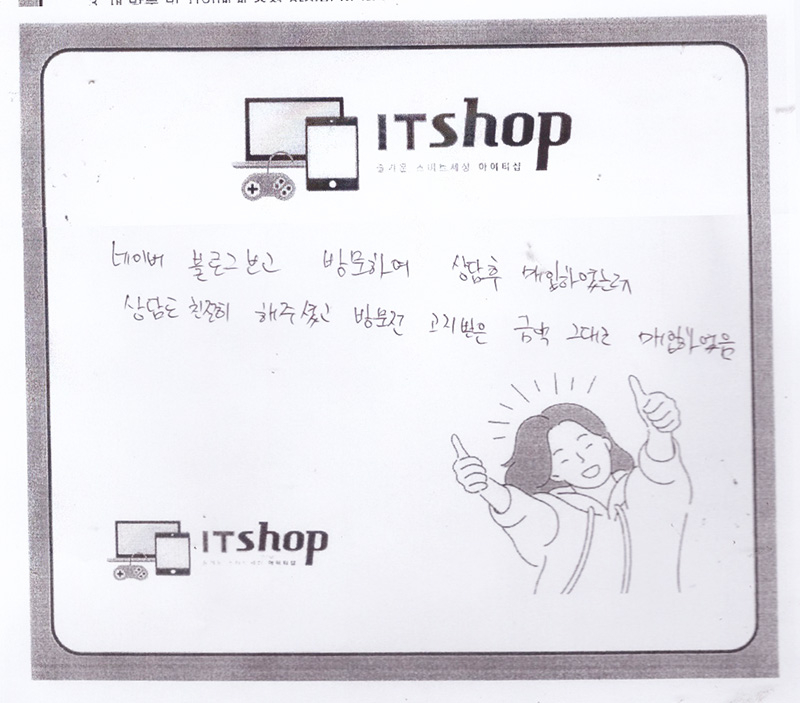 ITshop
즐거운 스마트세상 아이티샵
네이버 블로그 보고 방문하여 상담후 매입하였는데
상담도 친절히 해주셨고 방문전 고지받은 금액 그대로 매입하였음
ITshop
즐거운 스마트세상 아이티샵